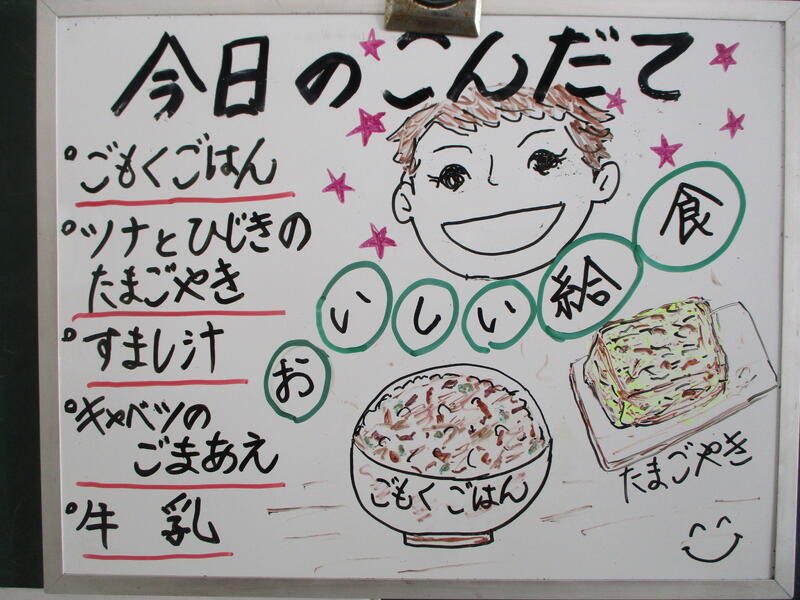 今日のこんだて
ごもくごはん
ツナとひじきの
たまごやき
すまし汁
キャベツの
ごまあえ
牛 乳
おいしい給食
ごもくごはん
たまごやき